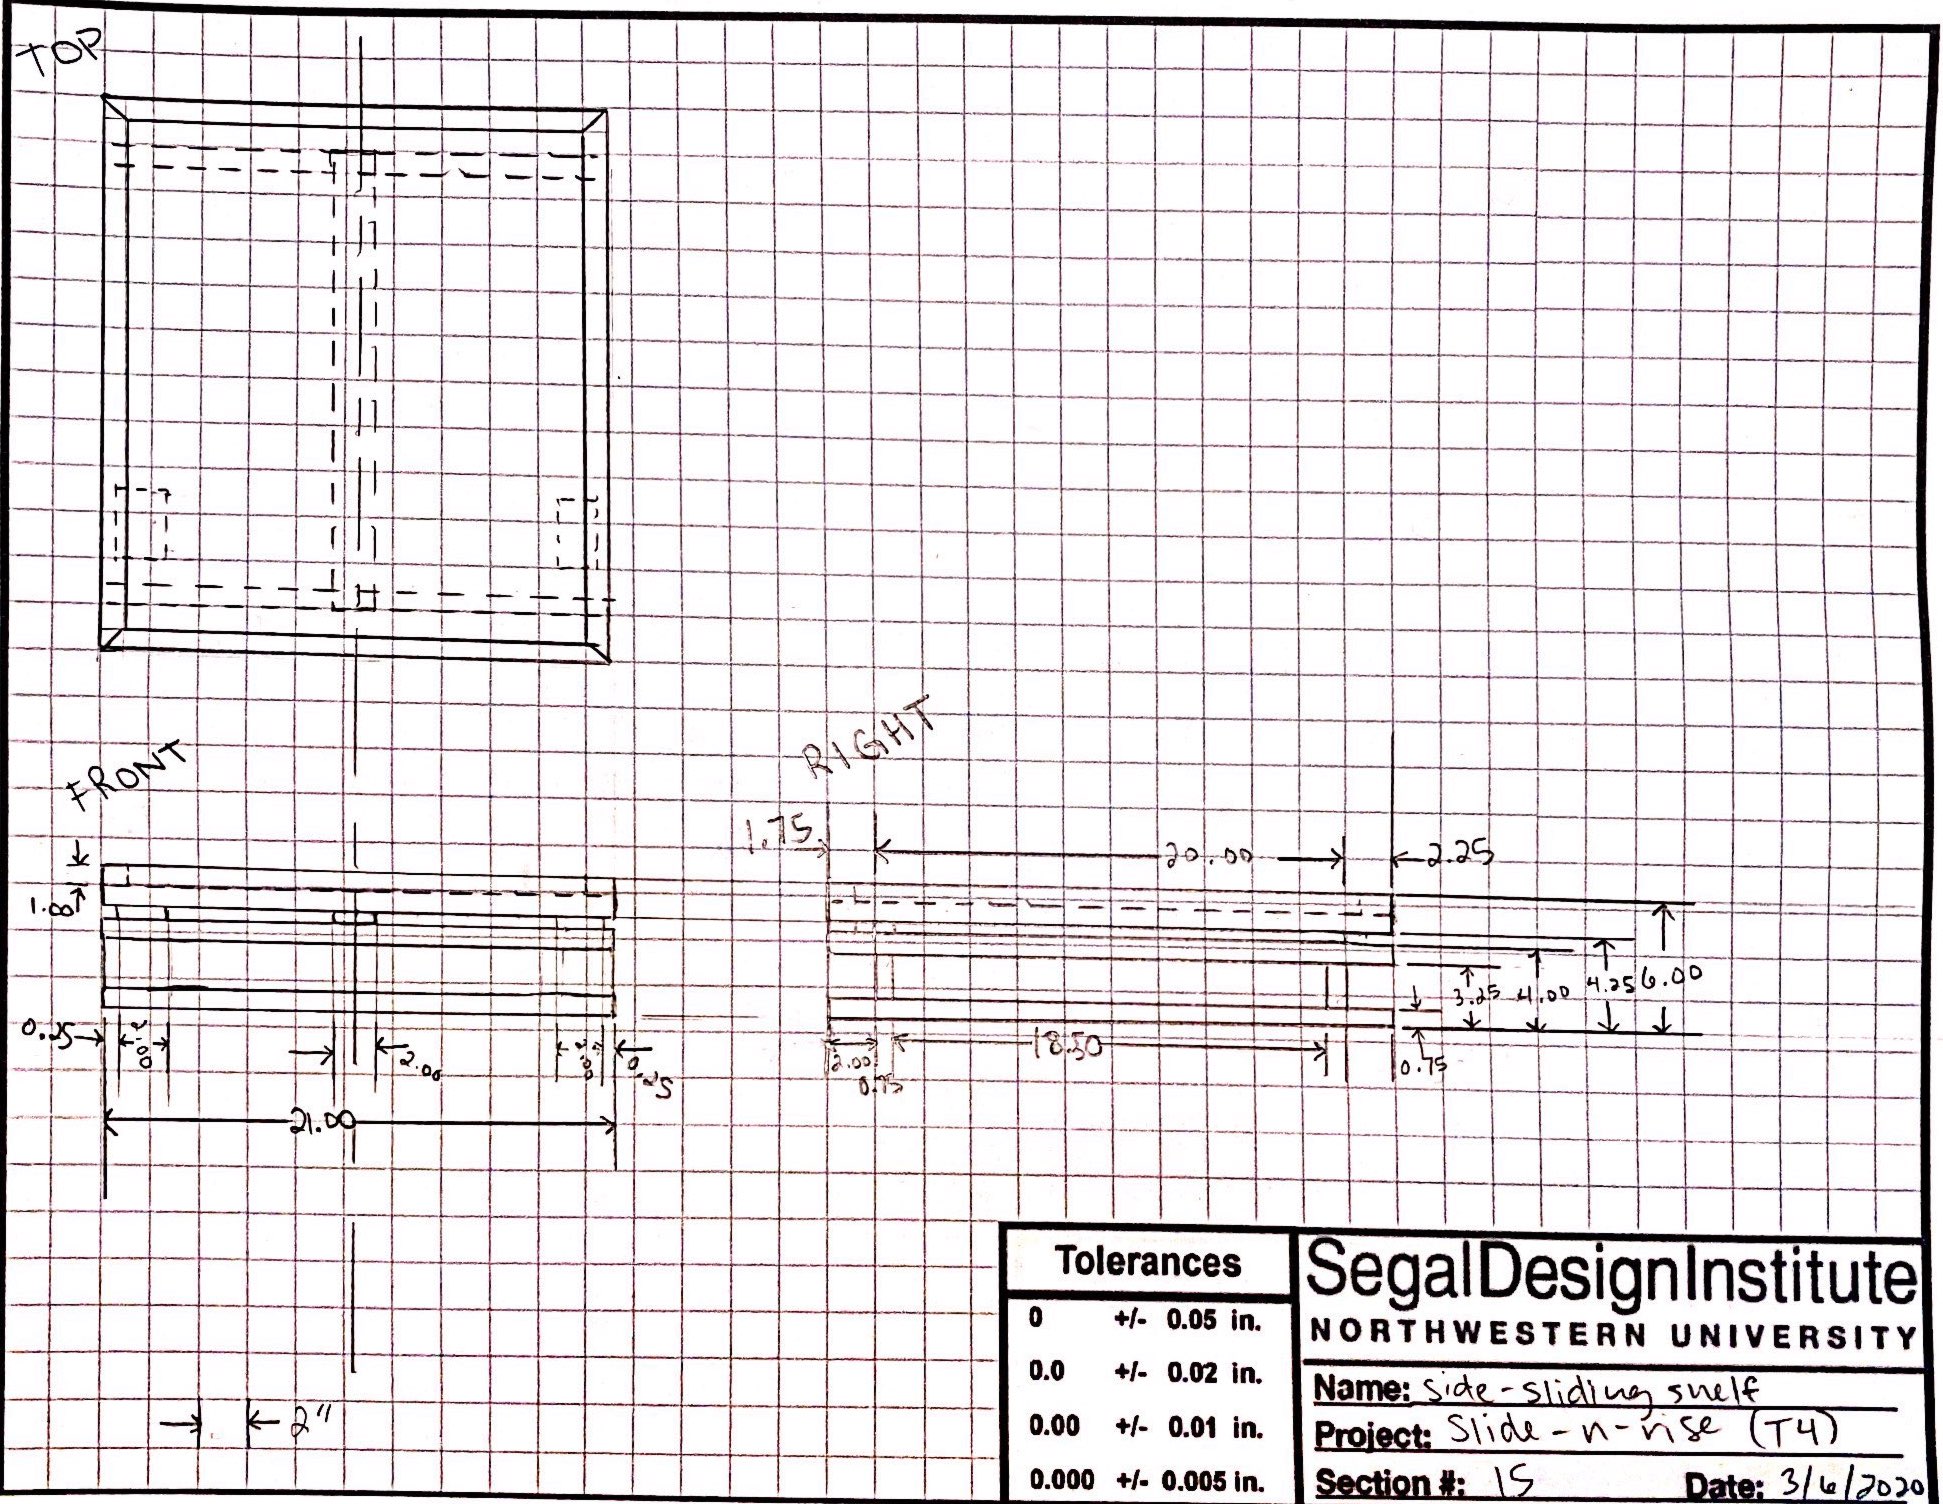 TOP
FRONT
RIGHT
1.75
20.00
2.25
1.00
3.25
4.00
4.25
6.00
0.25
2.00
2.00
0.25
2.00
0.75
18.50
0.75
21.00
2"
Tolerances
0 +/- 0.05 in.
0.0 +/- 0.02 in.
0.00 +/- 0.01 in.
0.000 +/- 0.005 in.
SegalDesignInstitute
NORTHWESTERN UNIVERSITY
Name: side-sliding shelf
Project: Slide-n-rise (T4)
Section #: 15
Date: 3/6/2020